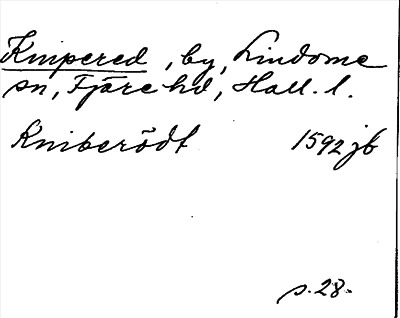 Knipered, by, Lindome
sn, Fjäre hd, Hall. l.
Kniberödt 1592 jb
s. 28.